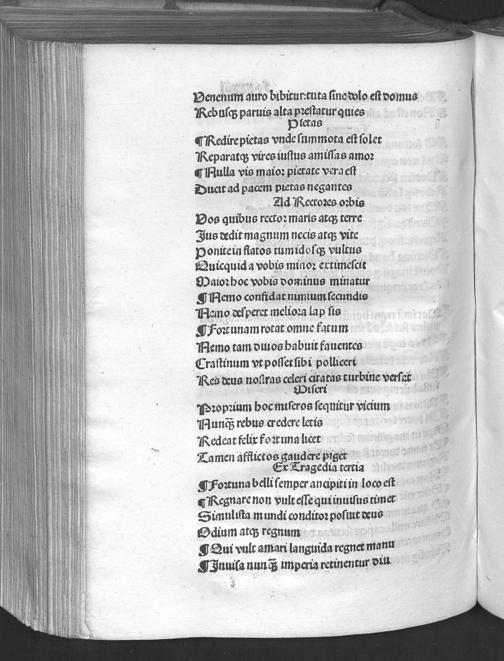 Venenum auro bibitur:tuta sine dolo est domus
Rebusqȝ paruis alta prestatur quies
Pietas
¶ Redire pietas vnde summota est solet
Reparatqȝ vires iustus amissas amor
¶ Nulla vis maior pietate vera est
Ducit ad pacem pietas negantes
Ad Rectores orbis
Vos quibus rector maris atqȝ terre
Jus dedit magnum necis atqȝ vite
Ponite inflatos tumidosqȝ vultus
Quicquid a vobis minor extimescit
Maior hoc vobis dominus minatur
¶ Nemo confidat nimium secundis
Nemo desperet meliora lapsis
¶ Fortunam rotat omne fatum
Nemo tam diuos habuit fauentes
Crastinum vt posset sibi polliceri
Res deus nostras celeri citatas turbine versat
Miseri
Proprium hoc miseros sequitur vicium
Nunqȝ̄ rebus credere letis
Redeat felix fortuna licet
Tamen afflictos gaudere piget
Ex Tragedia tertia
¶ Fortuna belli semper ancipiti in loco est
¶ Regnare non vult esse qui inuisus timet
Simulista mundi conditor posuit deus
Odium atqȝ regnum
¶ Qui vult amari languida regnet manu
¶ Jnuisa nunqȝ̄ imperia retinentur diu